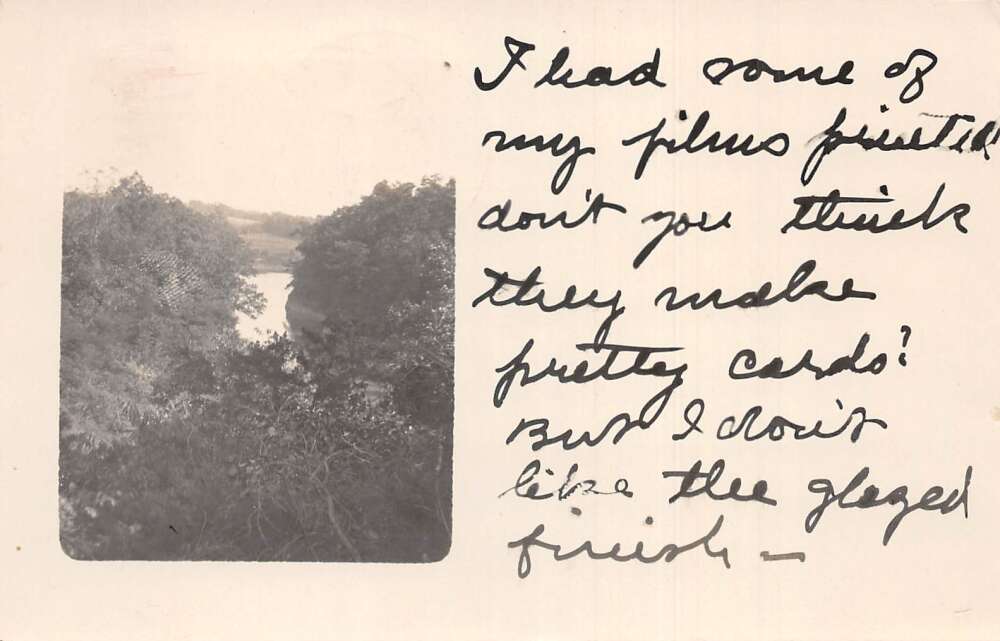 I had some of
my films printed
don't you think
they make
pretty cards?
But I don't
like the glazed
finish —